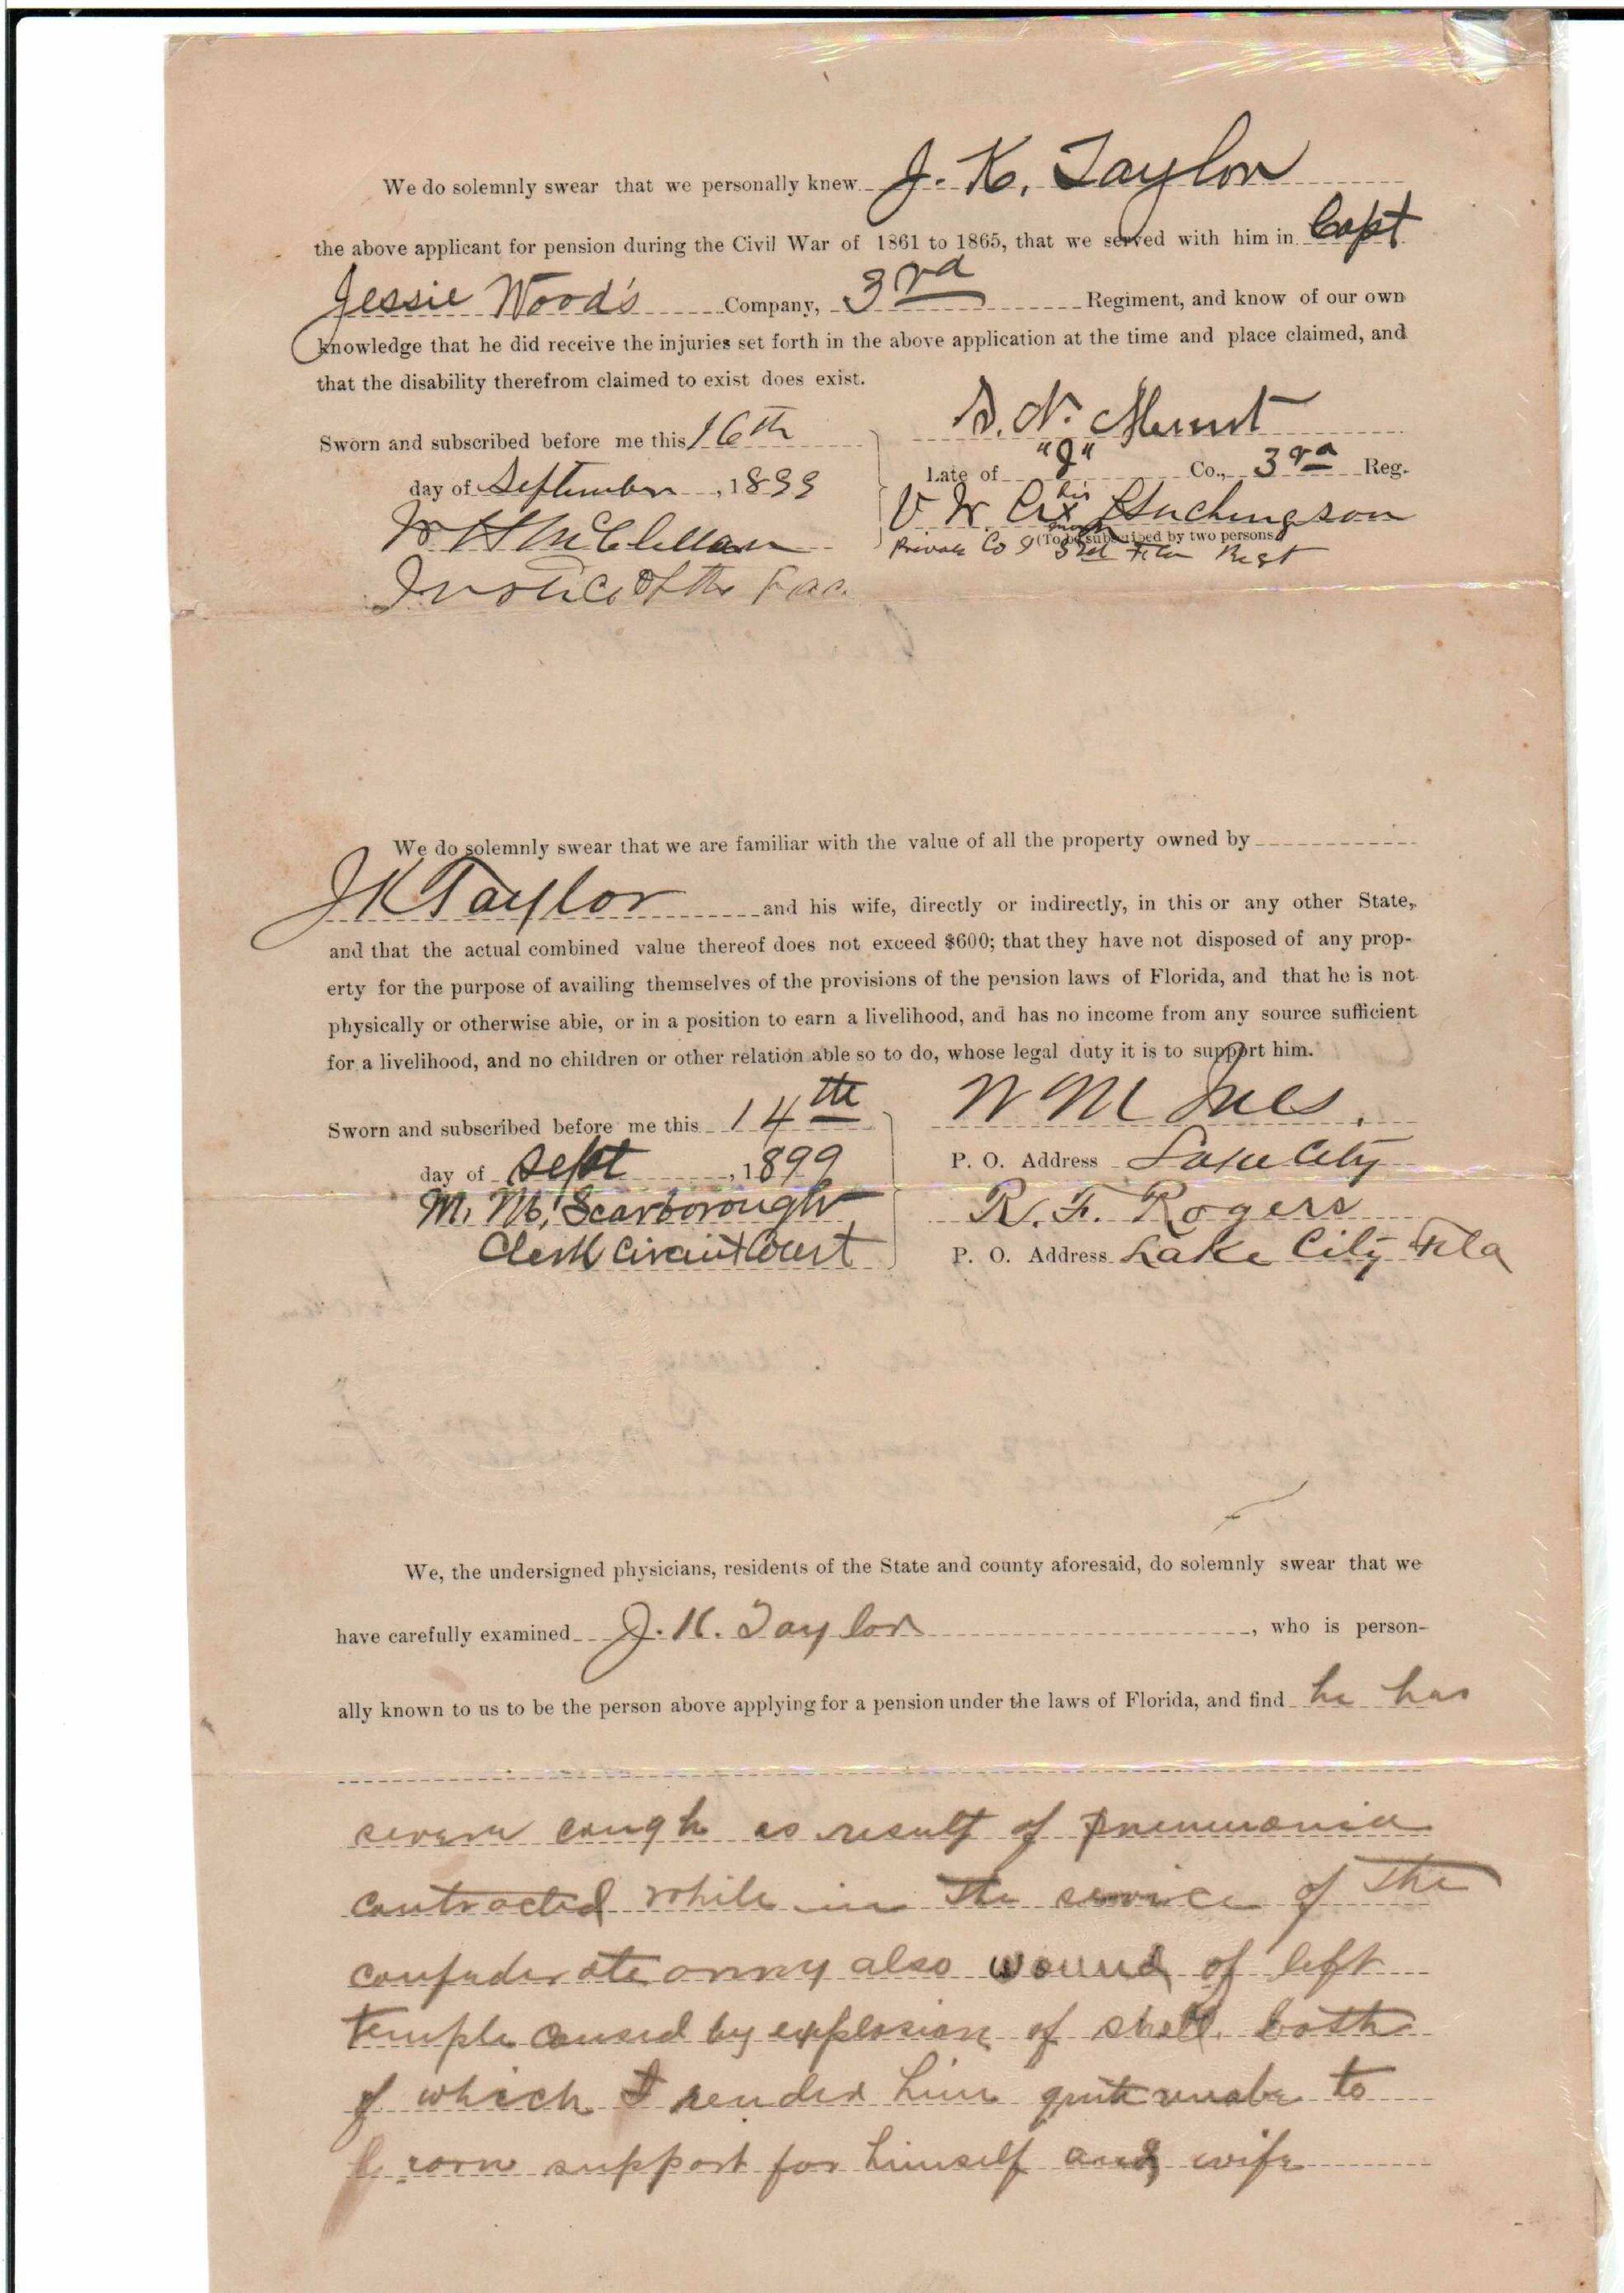 We do solemnly swear that we personally knew J. K. Taylor
the above applicant for pension during the Civil War of 1861 to 1865, that we served with him in Capt
Jessie Wood's Company, 3rd Regiment, and know of our own
knowledge that he did receive the injuries set forth in the above application at the time and place claimed, and
that the disability therefrom claimed to exist does exist.
Sworn and subscribed before me this 16th
day of September, 1899
W H McClellan
of the
D. N.
Late of "I" Co., 3rd Reg.
V W his x mark Huchingson
(To be subscribed by two persons)
Private Co I 3rd Fla Regt
We do solemnly swear that we are familiar with the value of all the property owned by
J K Taylor and his wife, directly or indirectly, in this or any other State,
and that the actual combined value thereof does not exceed $600; that they have not disposed of any prop-
erty for the purpose of availing themselves of the provisions of the pension laws of Florida, and that he is not
physically or otherwise able, or in a position to earn a livelihood, and has no income from any source sufficient
for a livelihood, and no children or other relation able so to do, whose legal duty it is to support him.
Sworn and subscribed before me this 14th
day of Sept, 1899
M. M. Scarborough
Clerk Circuit Court
W M Ives.
P. O. Address Lake City
R. F. Rogers
P. O. Address Lake City Fla
We, the undersigned physicians, residents of the State and county aforesaid, do solemnly swear that we
have carefully examined J. K. Taylor, who is person-
ally known to us to be the person above applying for a pension under the laws of Florida, and find he has
severe cough as result of pneumonia
contracted while in the service of the
confederate army also wound of left
temple caused by explosion of shell. both
of which render him quite unabe to
earn support for himself and wife